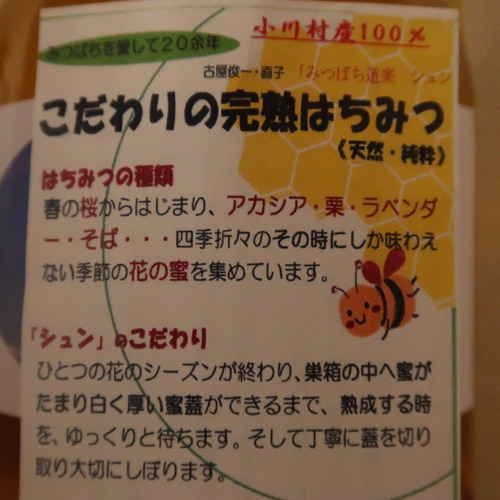 小川村産100%
みつばちを愛して20余年
古屋俊一・直子 「みつばち道楽 シュン
こだわりの完熟はちみつ
《天然・純粋》
はちみつの種類
春の桜からはじまり、アカシア・栗・ラベンダ
ー・そば・・・四季折々のその時にしか味わえ
ない季節の花の蜜を集めています。
「シュン」のこだわり
ひとつの花のシーズンが終わり、巣箱の中へ蜜が
たまり白く厚い蜜蓋ができるまで、熟成する時
を、ゆっくりと待ちます。そして丁寧に蓋を切り
取り大切にしぼります。